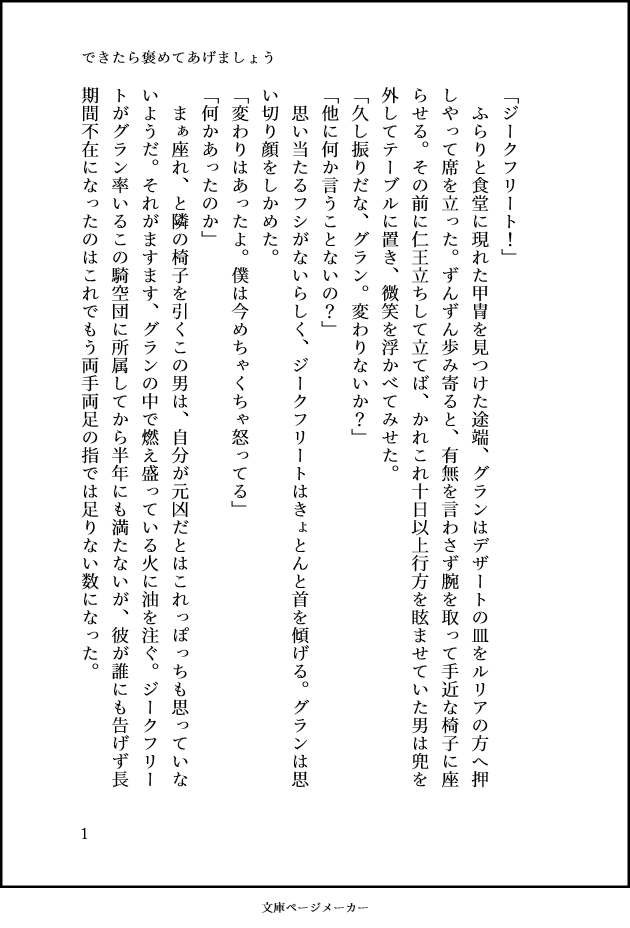 できたら褒めてあげましょう
「ジークフリート！」
　ふらりと食堂に現れた甲冑を見つけた途端、グランはデザートの皿をルリアの方へ押
しやって席を立った。ずんずん歩み寄ると、有無を言わさず腕を取って手近な椅子に座
らせる。その前に仁王立ちして立てば、かれこれ十日以上行方を眩ませていた男は兜を
外してテーブルに置き、微笑を浮かべてみせた。
「久し振りだな、グラン。変わりないか？」
「他に何か言うことないの？」
　思い当たるフシがないらしく、ジークフリートはきょとんと首を傾げる。グランは思
い切り顔をしかめた。
「変わりはあったよ。僕は今めちゃくちゃ怒ってる」
「何かあったのか」
　まぁ座れ、と隣の椅子を引くこの男は、自分が元凶だとはこれっぽっちも思っていな
いようだ。それがますます、グランの中で燃え盛っている火に油を注ぐ。ジークフリー
トがグラン率いるこの騎空団に所属してから半年にも満たないが、彼が誰にも告げず長
期間不在になったのはこれでもう両手両足の指では足りない数になった。
1
文庫ページメーカー